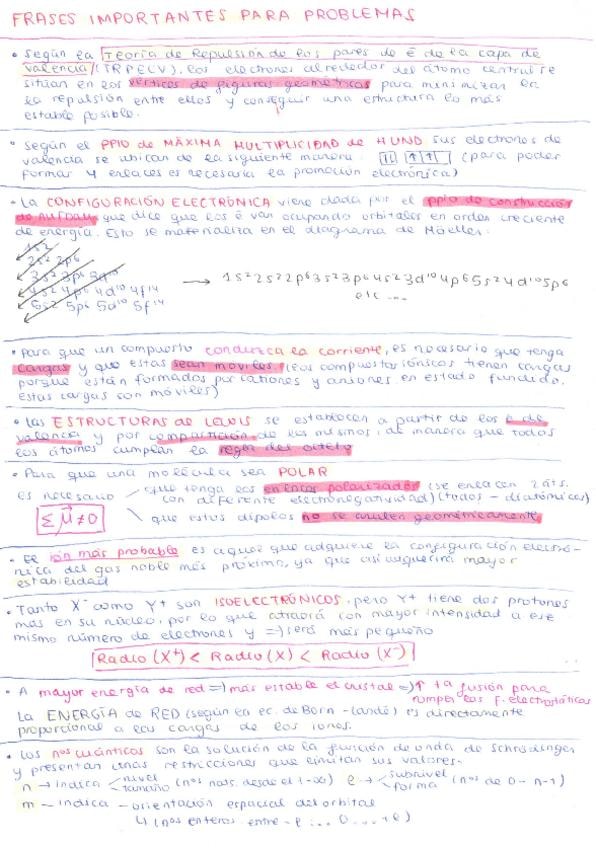 FRASES IMPORTANTES PARA PROBLEMAS
• Según la Teoría de Repulsión de los pares de é de la capa de
valencia (TRPECV), los electrones alrededor del átomo central se
sitúan en los vértices de figuras geométricas para minimizar en
la repulsión entre ellos y conseguir una estructura lo más
estable posible.
• Según el PPIO de MÁXIMA MULTIPLICIDAD de HUND sus electrones de
valencia se ubican de la siguiente manera (para poder
formar 4 enlaces es necesaria la promoción electrónica)
• La CONFIGURACIÓN ELECTRÓNICA viene dada por el ppio de construcción
de AUFBAU, que dice que los é van ocupando orbitales en orden creciente
de energía. Esto se materializa en el diagrama de Möeller.
1s²
2s² 2p⁶
3s² 3p⁶ 3d¹⁰
4s² 4p⁶ 4d¹⁰ 4f¹⁴
5s² 5p⁶ 5d¹⁰ 5f¹⁴
→ 1s² 2s² 2p⁶ 3s² 3p⁶ 4s² 3d¹⁰ 4p⁶ 5s² 4d¹⁰ 5p⁶
etc ...
• Para que un compuesto conduzca la corriente, es necesario que tenga
cargas y que estas sean móviles. (Los compuestos iónicos tienen cargas
porque están formados por cationes y aniones, en estado fundido,
estas cargas son móviles)
• Las ESTRUCTURAS de LEWIS se establecen a partir de los é de
valencia y por compartición de los mismos, de manera que todos
los átomos cumplan la regla del octeto
• Para que una molécula sea POLAR
es necesario
que tenga los enlaces polarizados (se enlacen 2 áts.
con diferente electronegatividad) (todos - diatómicos)
Σ μ ≠ 0
que estos dipolos no se anulen geométricamente
• El ión más probable es aquel que adquiere la configuración electró-
nica del gas noble más próximo, ya que así adquerirá mayor
estabilidad
• Tanto X⁻ como Y⁺ son ISOELECTRÓNICOS, pero Y⁺ tiene dos protones
más en su núcleo, por lo que atraerá con mayor intensidad a ese
mismo número de electrones y =) será más pequeño
Radio (X⁺) < Radio (X) < Radio (X⁻)
• A mayor energía de red =) más estable el cristal =) ↑ Tª fusión para
romper las f. electrostáticas
La ENERGÍA de RED (según en ec. de Born-Landé) es directamente
proporcional a las cargas de los iones.
• Los nos cuánticos son la solución de la función de onda de Schrödinger
y presentan unas restricciones que limitan sus valores.
n → indica nivel tamaño (nos nats. desde el 1-∞) l → subnivel forma (nos de 0 - n-1)
m - indica - orientación espacial del orbital
↳ (nos enteros entre -l ... 0 ... +l)